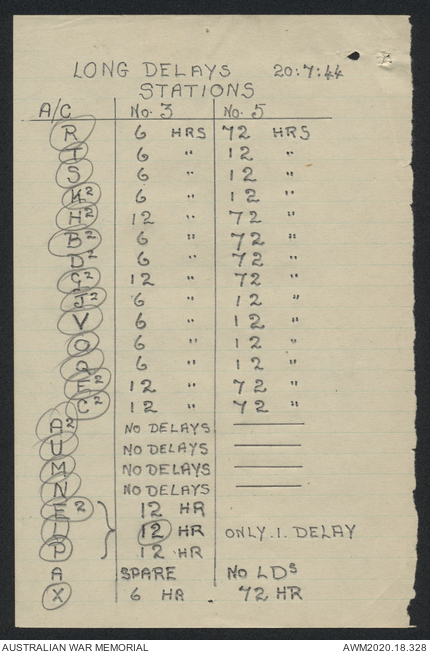 LONG DELAYS 20:7:44
STATIONS
A/C No. 3 No. 5
R 6 HRS 72 HRS
T 6 " 12 "
S 6 " 12 "
K² 6 " 12 "
H² 12 " 72 "
B² 6 " 72 "
D² 6 " 72 "
G² 12 " 72 "
J² 6 " 12 "
V 6 " 12 "
O 6 " 12 "
Q 6 " 12 "
F² 12 " 72 "
C² 12 " 72 "
A² NO DELAYS
U NO DELAYS
M NO DELAYS
N NO DELAYS
E² 12 HR
I 12 HR ONLY.1. DELAY
P 12 HR
A SPARE NO LDs
X 6 HR 72 HR
AUSTRALIAN WAR MEMORIAL AWM2020.18.328